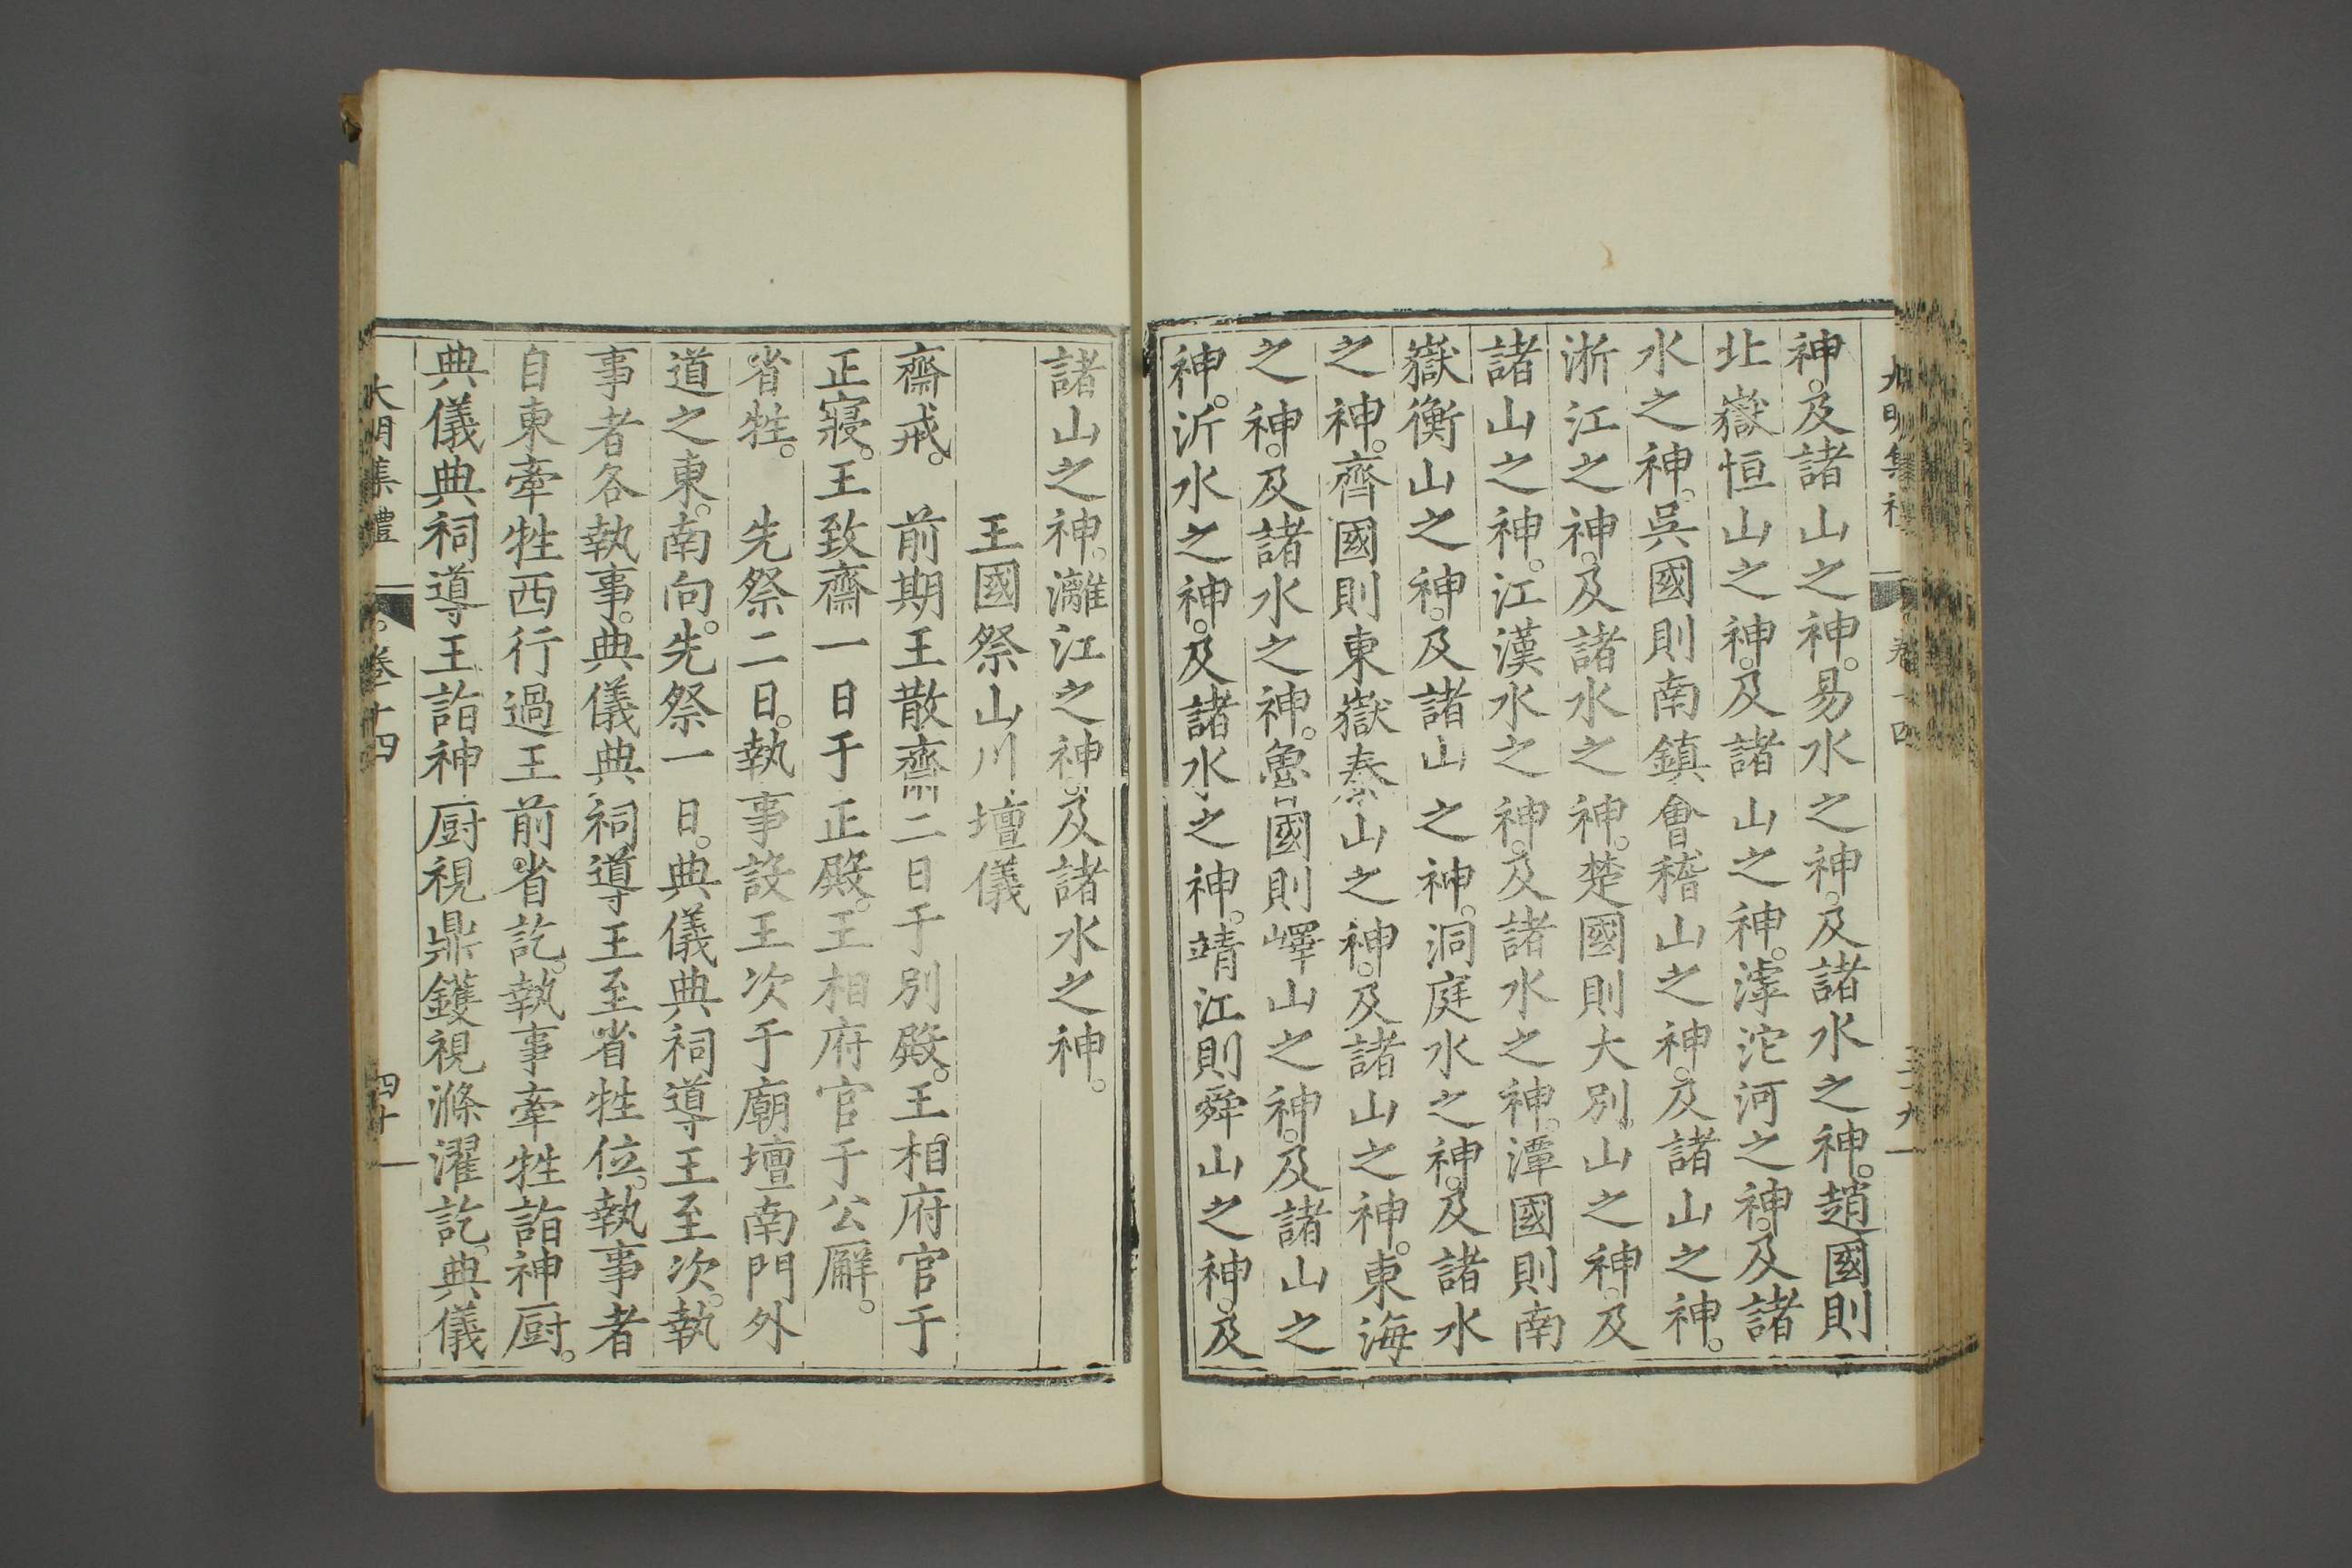 大明集禮 卷十四 三十九
神。及諸山之神。易水之神。及諸水之神。趙國則
北嶽恒山之神。及諸山之神。滹沱河之神。及諸
水之神。吳國則南鎮會稽山之神。及諸山之神。
淅江之神。及諸水之神。楚國則大別山之神。及
諸山之神。江漢水之神。及諸水之神。潭國則南
嶽衡山之神。及諸山之神。洞庭水之神。及諸水
之神。齊國則東嶽泰山之神。及諸山之神。東海
之神。及諸水之神。魯國則嶧山之神。及諸山之
神。沂水之神。及諸水之神。靖江則舜山之神。及
諸山之神。灕江之神。及諸水之神。
王國祭山川壇儀
齋戒。 前期王散齋二日于別殿。王相府官于
正寢。王致齋一日于正殿。王相府官于公廨。
省牲。 先祭二日。執事設王次于廟壇南門外
道之東。南向。先祭一日。典儀典祠導王至次。執
事者各執事。典儀典祠導王至省牲位。執事者
自東牽牲西行過王前。省訖。執事牽牲詣神厨。
典儀典祠導王詣神厨視鼎鑊視滌濯訖。典儀
大明集禮 卷十四 四十